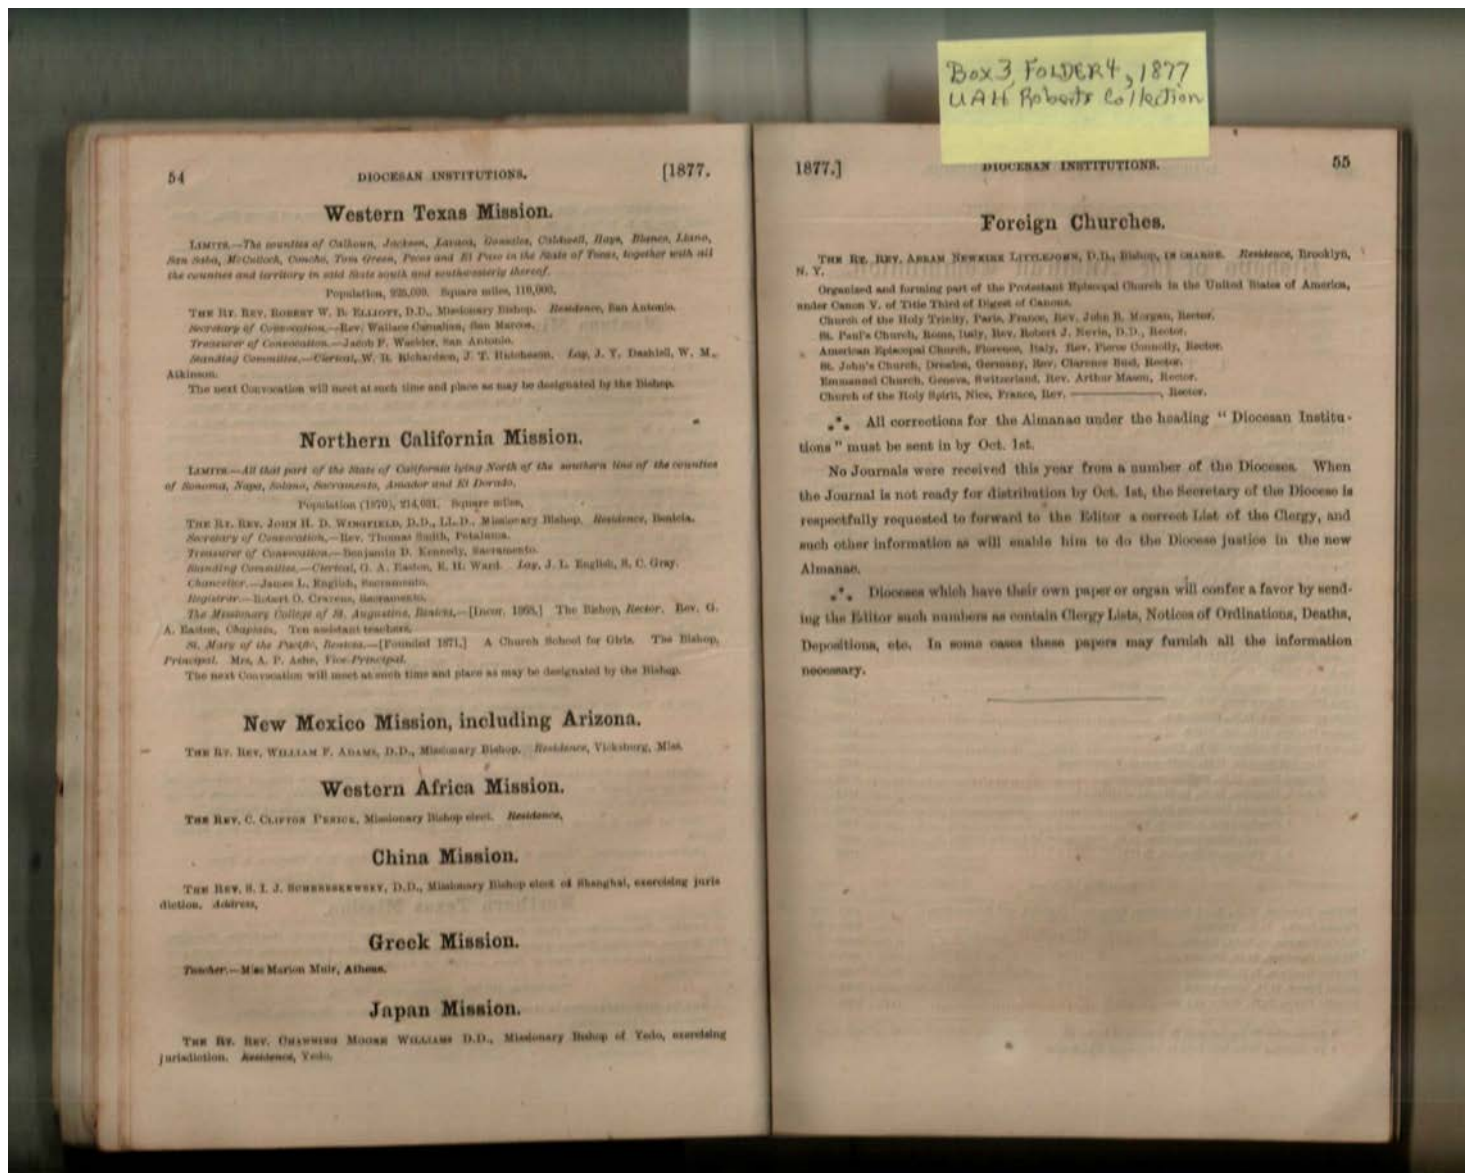 Box 3 FOLDER 4, 1877
UAH Roberts Collection
54 DIOCESAN INSTITUTIONS. [1877.
Western Texas Mission.
LIMITS.—The counties of Calhoun, Jackson, Lavaca, Gonzales, Caldwell, Hays, Blanco, Llano,
San Saba, McCulloch, Concho, Tom Green, Pecos and El Paso in the State of Texas, together with all
the counties and territory in said State south and southwesterly thereof.
Population, Square miles, 110,000.
THE RT. REV. ROBERT W. B. ELLIOTT, D.D., Missionary Bishop. Residence, San Antonio.
Secretary of Convocation.—Rev. Wallace Carnahan, San Marcos.
Treasurer of Convocation.—Jacob F. Waelder, San Antonio.
Standing Committee.—Clerical, W. R. Richardson, J. T. Hutcheson. Lay, J. Y. Dashiell, W. M.
Atkinson.
The next Convocation will meet at such time and place as may be designated by the Bishop.
Northern California Mission.
LIMITS.—All that part of the State of California lying North of the southern line of the counties
of Sonoma, Napa, Solano, Sacramento, Amador and El Dorado.
Population (1870), 214,031. Square miles,
THE RT. REV. JOHN H. D. WINGFIELD, D.D., LL.D., Missionary Bishop. Residence, Benicia.
Secretary of Convocation,—Rev. Thomas Smith, Petaluma.
Treasurer of Convocation.—Benjamin D. Kennedy, Sacramento.
Standing Committee.—Clerical, G. A. Easton, E. H. Ward. Lay, J. L. English, S. C. Gray.
Chancellor.—James L. English, Sacramento.
Registrar.—Robert O. Cravens, Sacramento.
The Missionary College of St. Augustine, Benicia,—[Incor. 1868.] The Bishop, Rector. Rev. G.
A. Easton, Chaplain, Ten assistant teachers.
St. Mary of the Pacific, Benicia.—[Founded 1871.] A Church School for Girls. The Bishop,
Principal. Mrs. A. P. Ashe, Vice-Principal.
The next Convocation will meet at such time and place as may be designated by the Bishop.
New Mexico Mission, including Arizona.
THE RT. REV. WILLIAM F. ADAMS, D.D., Missionary Bishop. Residence, Vicksburg, Miss.
Western Africa Mission.
THE REV. C. CLIFTON PENICK, Missionary Bishop elect. Residence,
China Mission.
THE REV. S. I. J. SCHERESKEWSKY, D.D., Missionary Bishop elect of Shanghai, exercising juris
diction. Address,
Greek Mission.
Teacher.—Miss Marion Muir, Athens.
Japan Mission.
THE RT. REV. CHANNING MOORE WILLIAMS D.D., Missionary Bishop of Yedo, exercising
jurisdiction. Residence, Yedo.
1877.] DIOCESAN INSTITUTIONS. 55
Foreign Churches.
THE RT. REV. ABRAM NEWKIRK LITTLEJOHN, D.D., Bishop, IN CHARGE. Residence, Brooklyn,
N. Y.
Organized and forming part of the Protestant Episcopal Church in the United States of America,
under Canon V. of Title Third of Digest of Canons.
Church of the Holy Trinity, Paris, France, Rev. John B. Morgan, Rector.
St. Paul's Church, Rome, Italy, Rev. Robert J. Nevin, D.D., Rector.
American Episcopal Church, Florence, Italy, Rev. Pierce Connolly, Rector.
St. John's Church, Dresden, Germany, Rev. Clarence Buel, Rector.
Emmanuel Church, Geneva, Switzerland, Rev. Arthur Mason, Rector.
Church of the Holy Spirit, Nice, France, Rev. ————, Rector.
⁂ All corrections for the Almanac under the heading " Diocesan Institu-
tions " must be sent in by Oct. 1st.
No Journals were received this year from a number of the Dioceses. When
the Journal is not ready for distribution by Oct. 1st, the Secretary of the Diocese is
respectfully requested to forward to the Editor a correct List of the Clergy, and
such other information as will enable him to do the Diocese justice in the new
Almanac.
⁂ Dioceses which have their own paper or organ will confer a favor by send-
ing the Editor such numbers as contain Clergy Lists, Notices of Ordinations, Deaths,
Depositions, etc. In some cases these papers may furnish all the information
necessary.